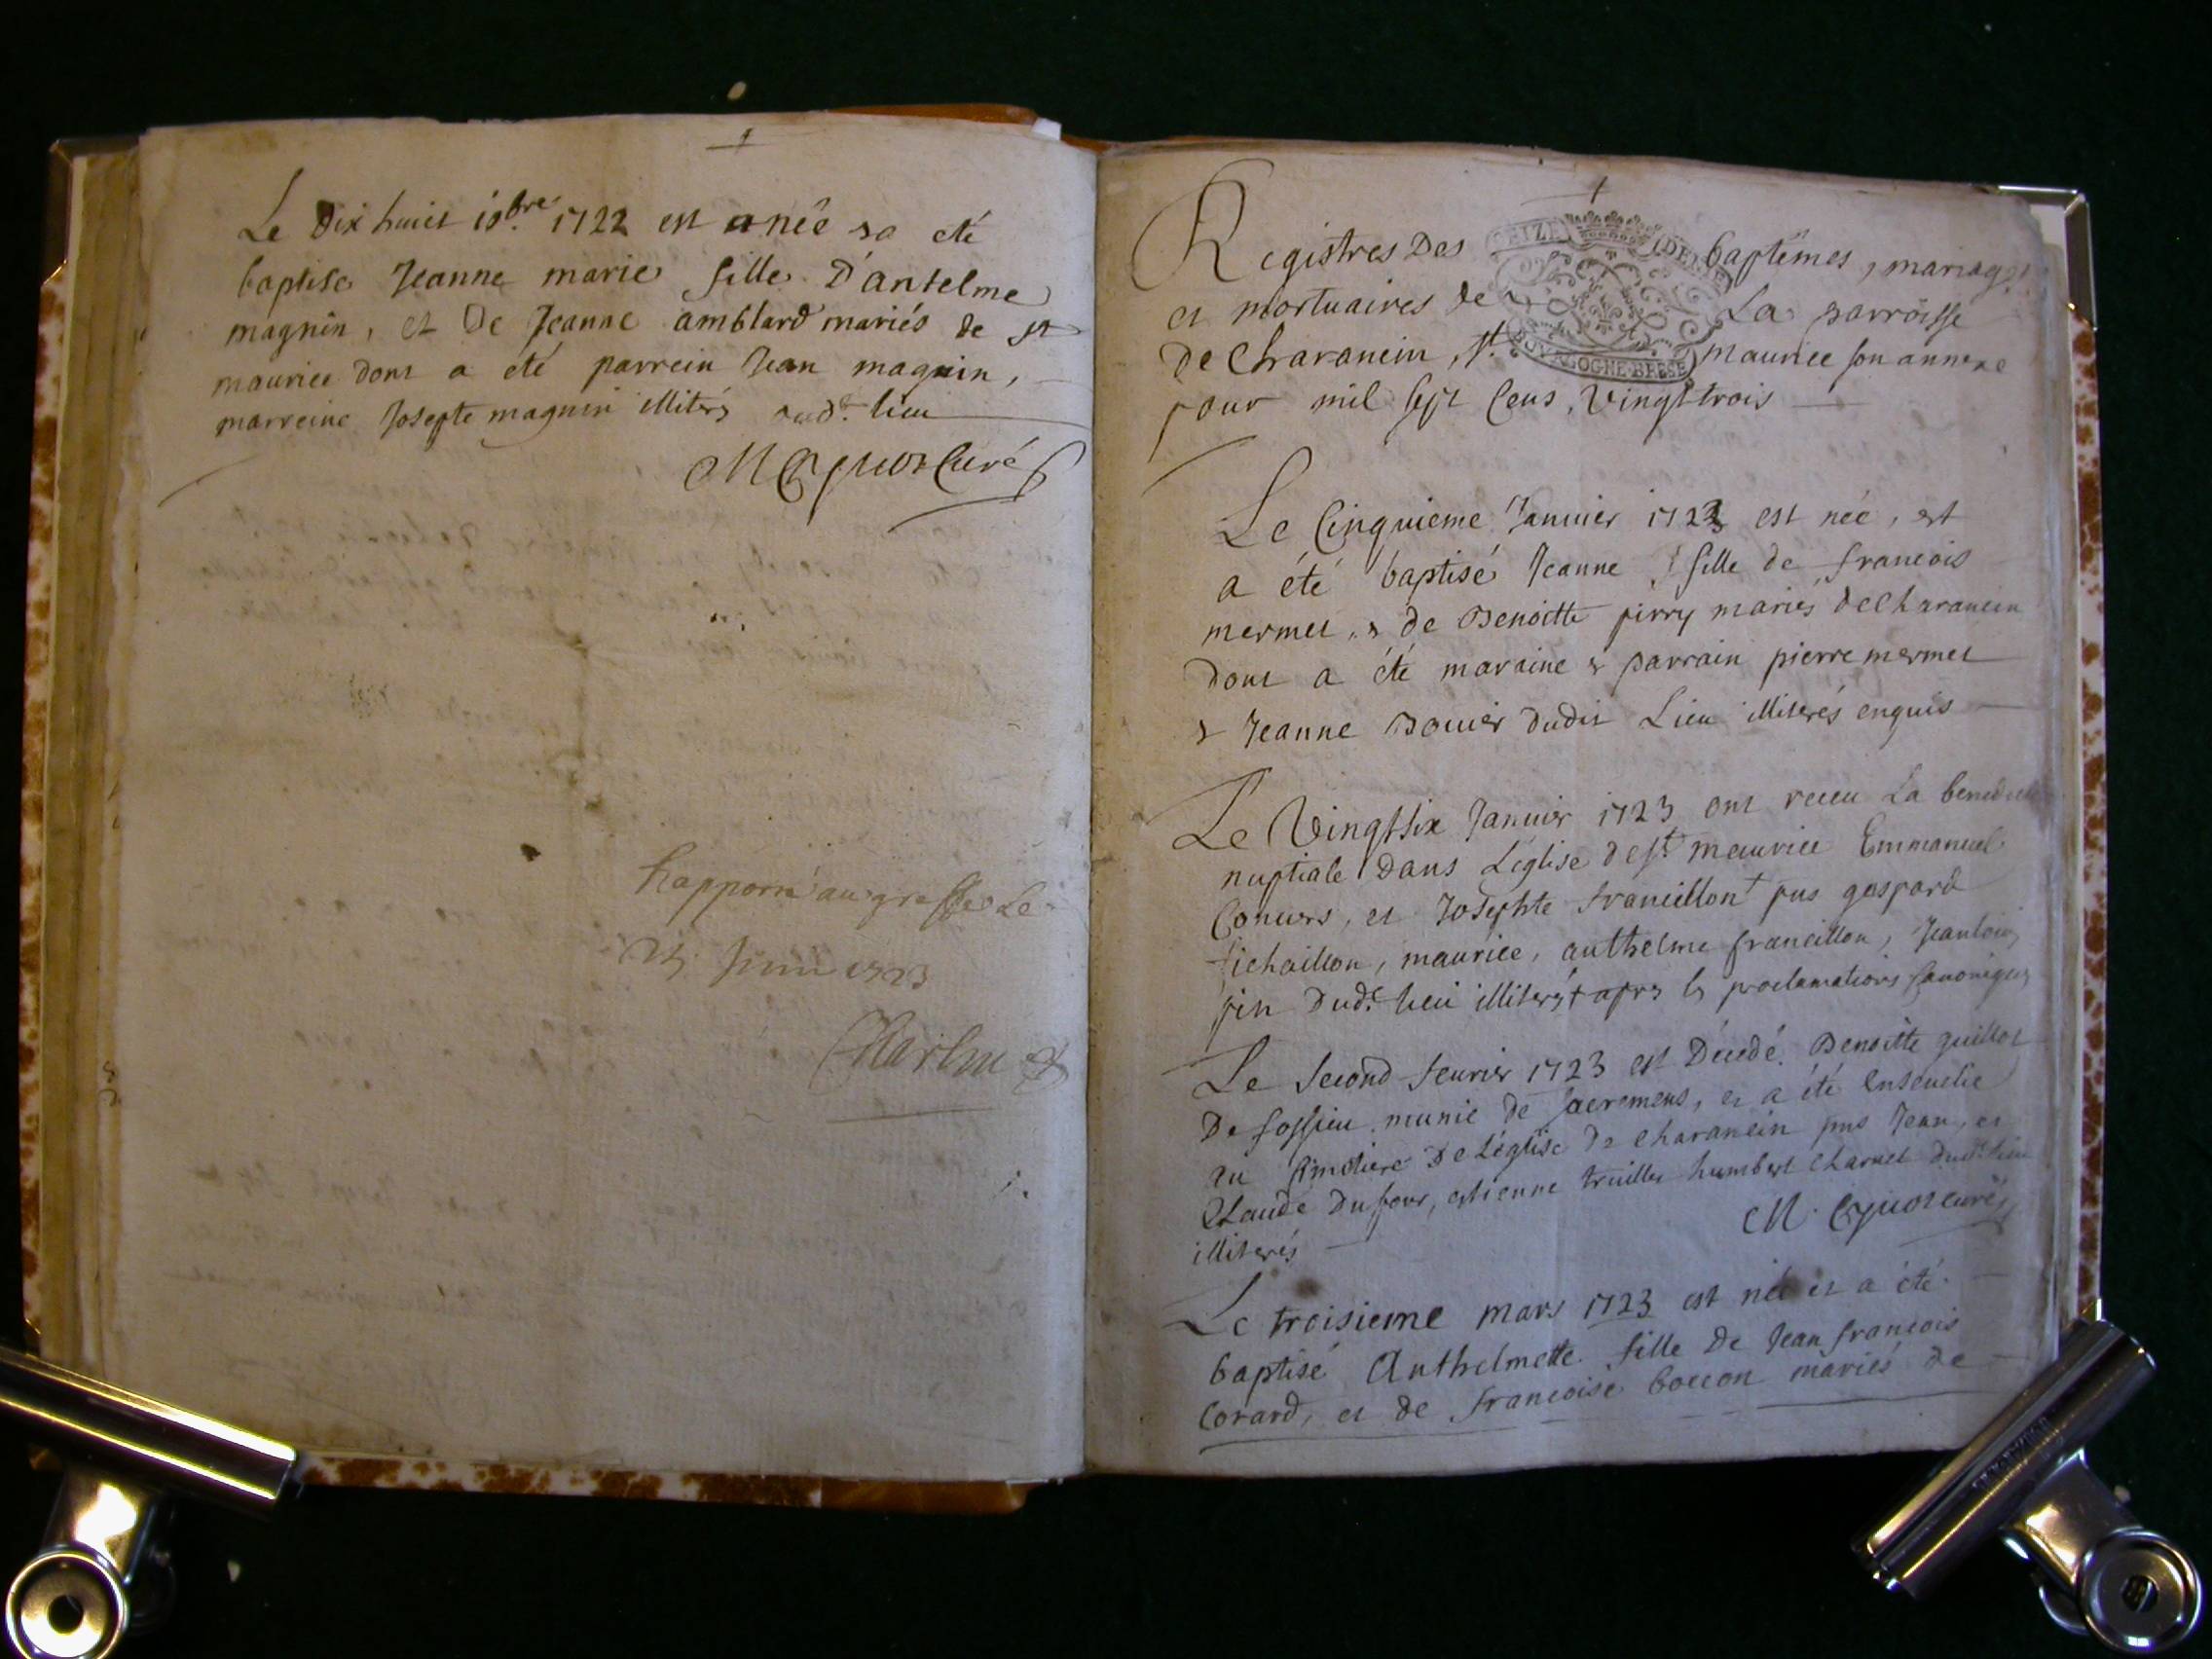 Le dix huict 10bre 1722 est née & a eté
baptisé Jeanne marie fille D'antelme
magnin, et De Jeanne amblard mariés de st
maurice dont a été parrein Jean magnin,
marreine Josepte magnin illiterés dudt lieu
Curé
Rapporté au greffe Le
Juin 1723
Registres Des baptêmes, mariages
et mortuaires de La parroisse
de Charancin, St maurice son annexe
pour mil sept Cens, Vingt trois
SEIZE DENIE
BOVRGOGNE·BRESE
Le Cinquieme Januier 1723 est née, est
a été baptisé Jeanne, fille de francois
mermet, & de Benoitte pirry mariés de Charancin
dont a été maraine & parrain pierre mermet
& Jeanne Bouier dudit Lieu illiterés enquis
Le Vingt six Januier 1723 ont receu La
nuptiale Dans L'eglise de st maurice Emmanuel
Conuers, et Josephte francillon + pns gaspard
fichaillon, maurice, authelme francillon, Jean louis
pin Dudt lieu illiterés + apres les proclamations Canoniques
Le Second feurier 1723 est Décédé Benoitte guillot
De fossieu munie de sacremens, et a été Enseuelie
au Cimetiere De L'église De Charancin pns Jean, et
Claude Dufour, estienne truillet humbert Charuet dudt lieu
illiterés
M. curé
Le troisieme mars 1723 est née et a été
baptisé Anthelmette fille De Jean francois
Corard, et de francoise boccon mariés de